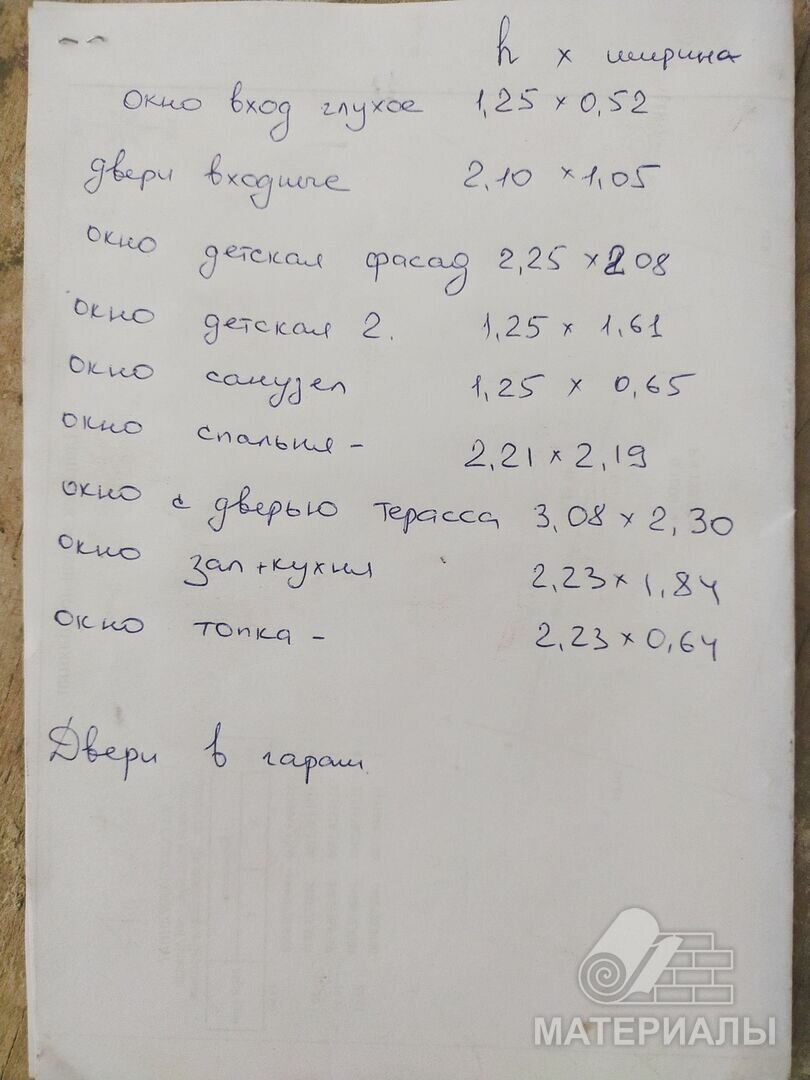 h х ширина
окно вход глухое 1,25 × 0,52
двери входные 2,10 × 1,05
окно детская фасад 2,25 × 208
окно детская 2. 1,25 × 1,61
окно санузел 1,25 × 0,65
окно спальня - 2,21 × 2,19
окно с дверью терасса 3,08 × 2,30
окно зал + кухня 2,23 × 1,84
окно топка - 2,23 × 0,64
Двери в гараж
МАТЕРИАЛЫ